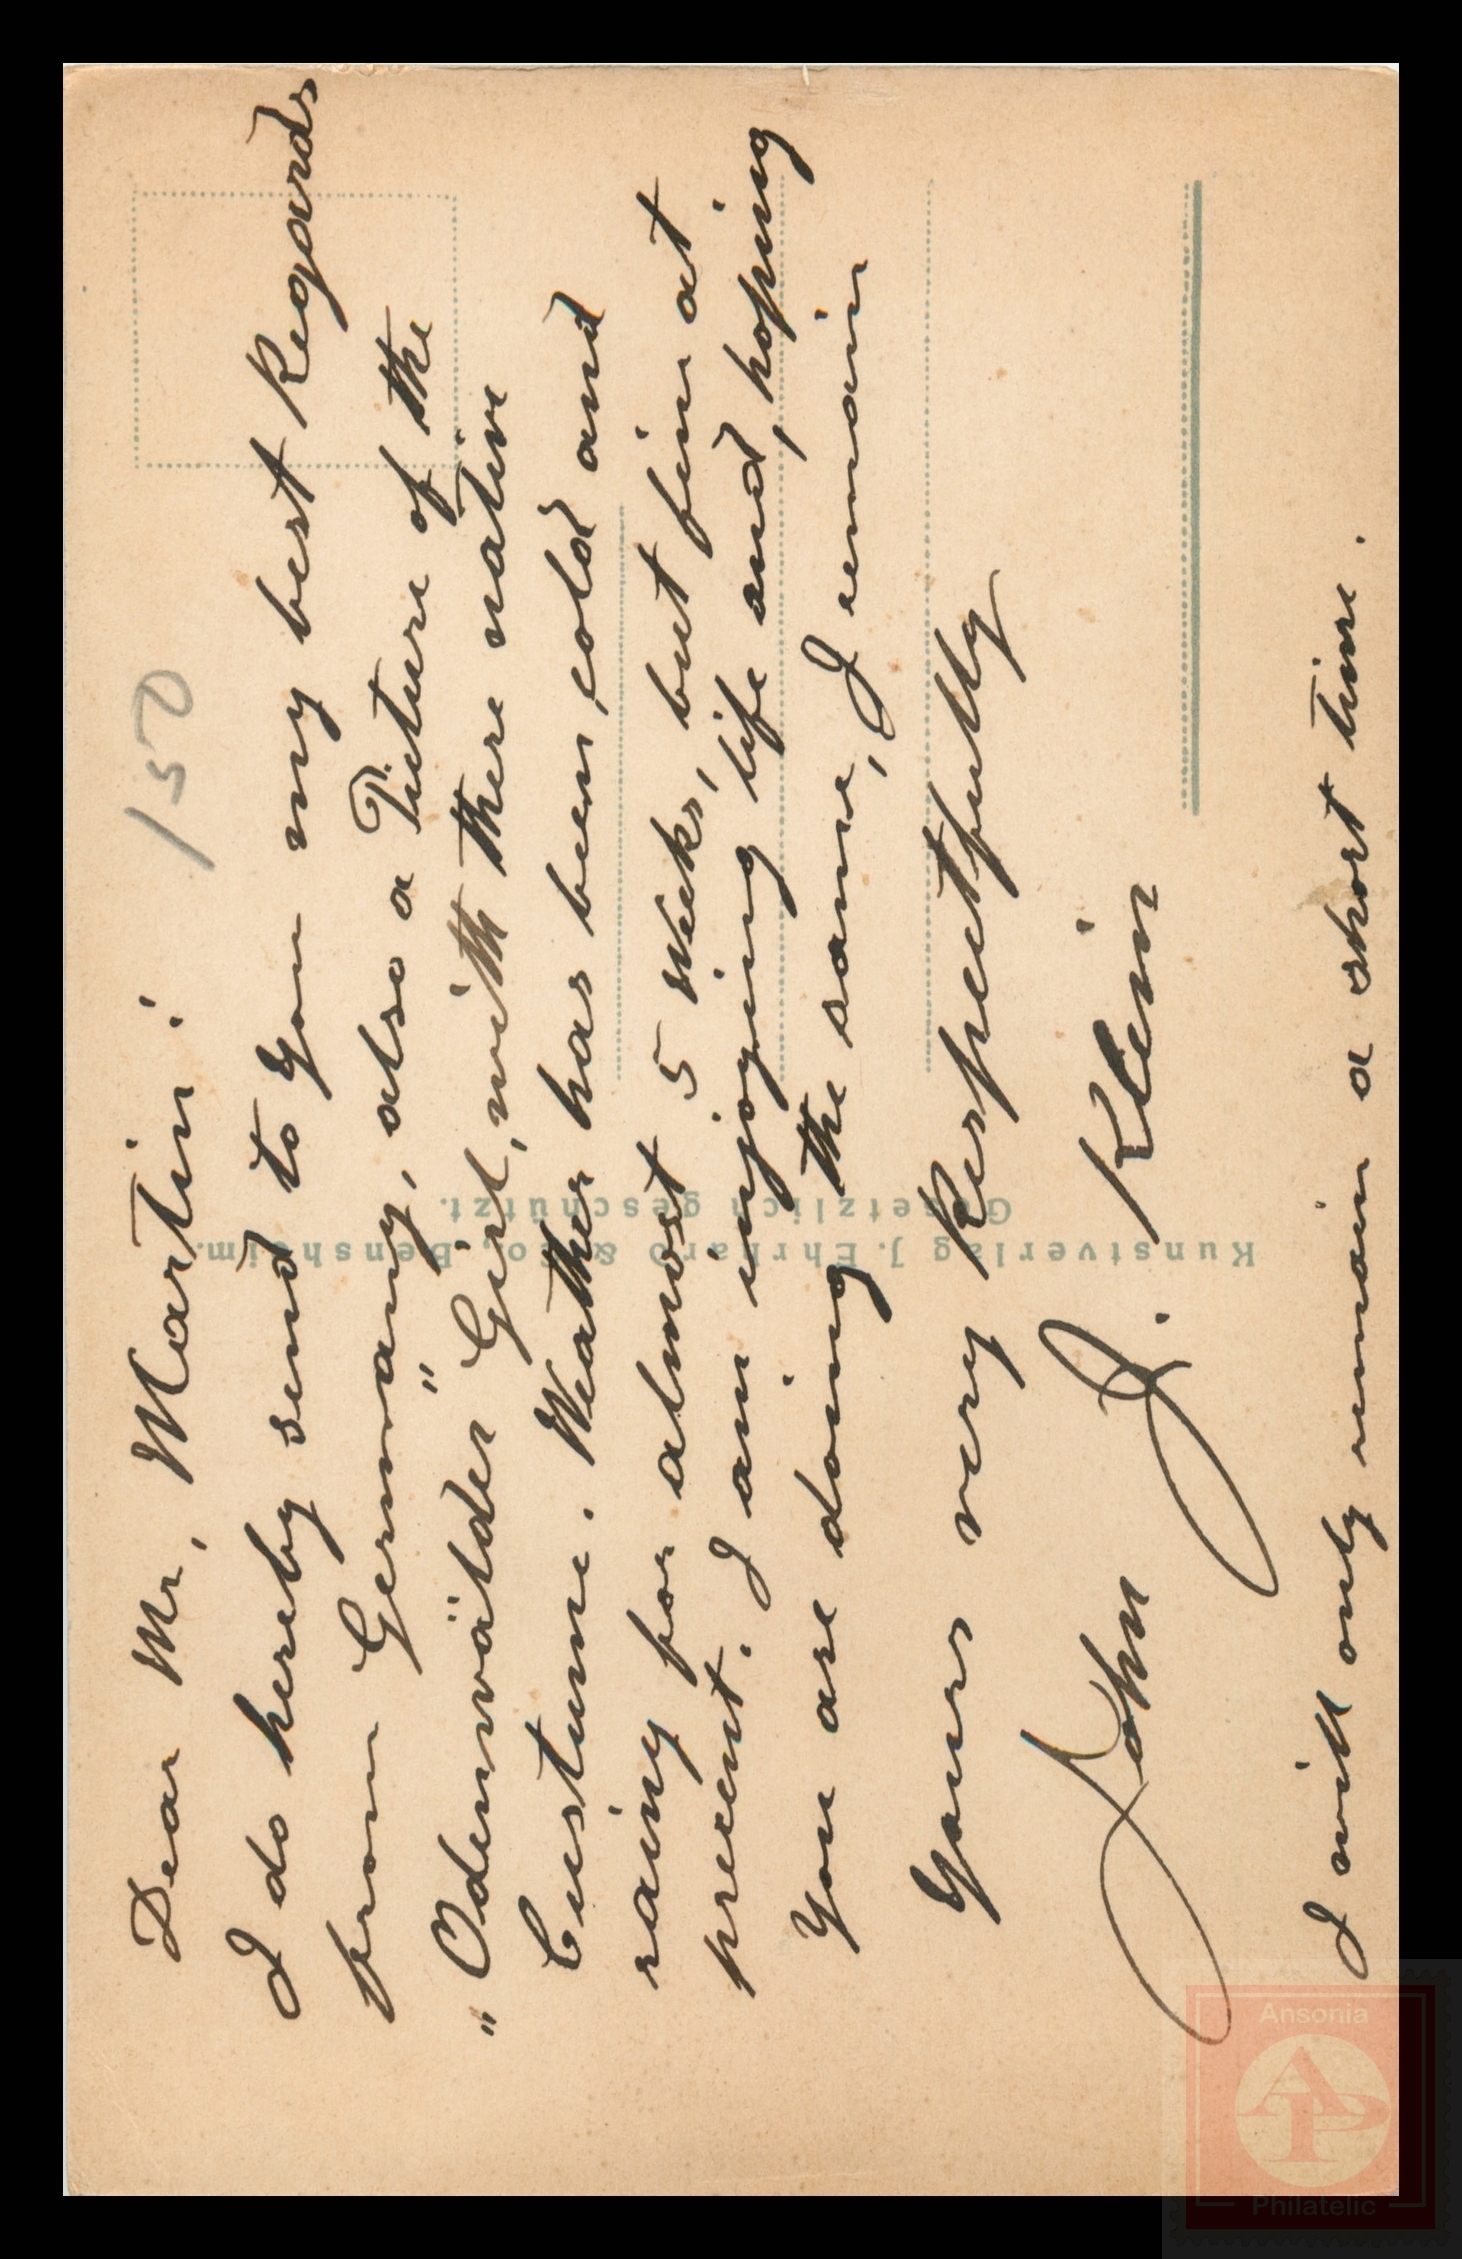 150
Dear Mr, Martin!
I do hereby send to You my best Regards
from Germany, also a Picture of the
„Odenwälder" Girl, with there native
Custume. Weather has been, cold and
rainy for almost 5 Weeks, but fin at
precent. I am injoying life and, hoping
You are doing the same, I remain
Yours very Respectfully
John J. Klein
I will only remain a short time.
Kunstverlag J. Ehrhard & Co., Bensheim.
Gesetzlich geschützt.
Ansonia
AP
Philatelic